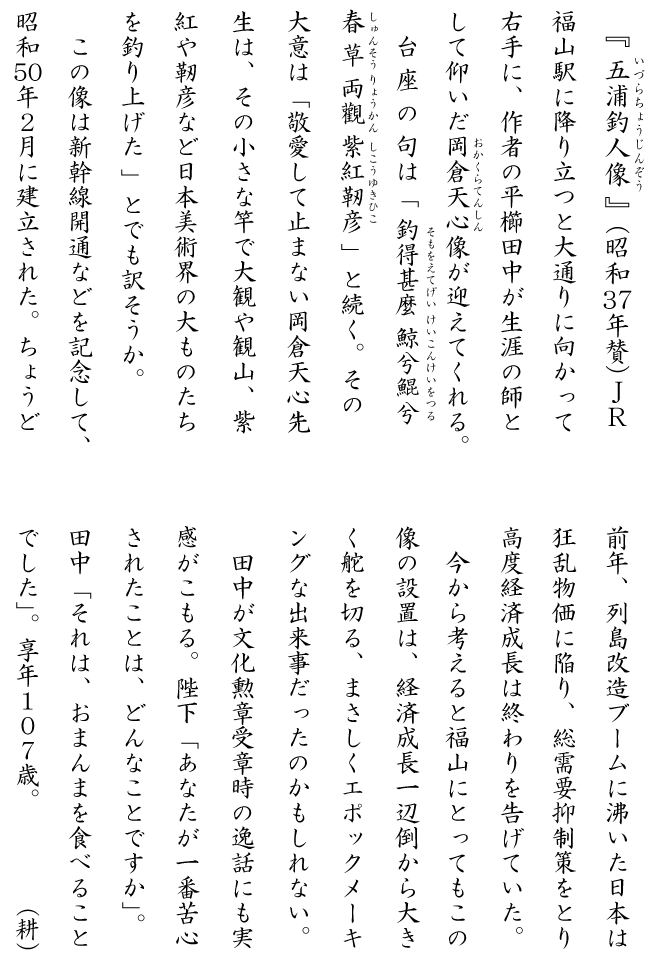 『五浦釣人像』（昭和37年賛）ＪＲ
福山駅に降り立つと大通りに向かって
右手に、作者の平櫛田中が生涯の師と
して仰いだ岡倉天心像が迎えてくれる。
台座の句は「釣得甚麼 鯨兮鯤兮
春草両觀 紫紅靭彦」と続く。その
大意は「敬愛して止まない岡倉天心先
生は、その小さな竿で大観や観山、紫
紅や靭彦など日本美術界の大ものたち
を釣り上げた」とでも訳そうか。
この像は新幹線開通などを記念して、
昭和50年２月に建立された。ちょうど
前年、列島改造ブームに沸いた日本は
狂乱物価に陥り、総需要抑制策をとり
高度経済成長は終わりを告げていた。
今から考えると福山にとってもこの
像の設置は、経済成長一辺倒から大き
く舵を切る、まさしくエポックメーキ
ングな出来事だったのかもしれない。
田中が文化勲章受章時の逸話にも実
感がこもる。陛下「あなたが一番苦心
されたことは、どんなことですか」。
田中「それは、おまんまを食べること
でした」。享年１０７歳。 （耕）
いづらちょうじんぞう
おかくらてんしん
そもをえてげい けいこんけいをつる
しゅんそうりょうかん しこうゆきひこ